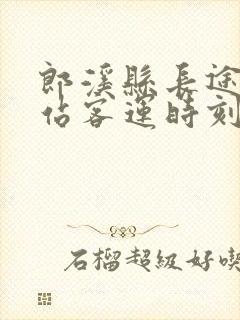 郎溪縣長途
佔客運時刻
石榴超級好喫